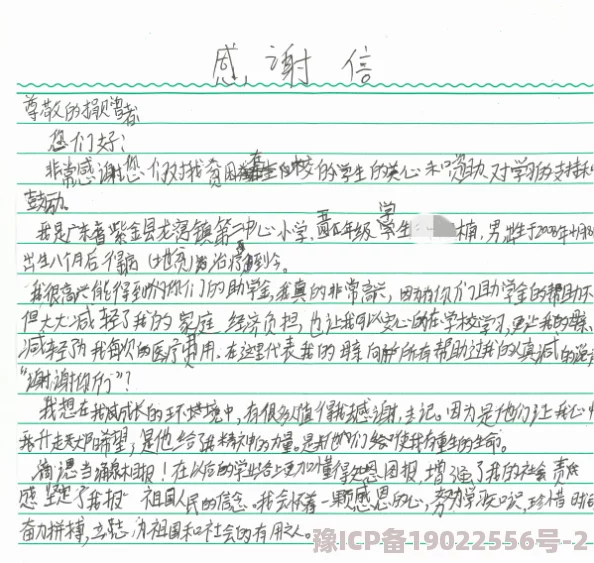 感谢信
尊敬的捐赠者
您们好:
非常感谢您们对我贫困 校的学生的关心和资助.对学习的支持和
鼓动.
我是广东省紫金县龙窝镇第二中心小学,五年级 学生 楠,男,出生于2008年4月
出生八个月后得病(地贫)治疗到至今。
我很高兴能得到你们的助学金,我真的非常高兴,因为你们助学金的帮助不
但大大减轻了我的家庭 经济负担,也让我可以安心的在学校学习,更让我的母亲
减轻了我每次的医疗费用.在这里代表我的母亲向所有帮助过我的人真诚的说声
"谢谢你们"?
我想在我成长的环境中,有很多人值得我感谢, 记。因为是他们让我心中
升起 希望,是他给了我精神的力量。是他们给 使我有重生的生命。
滴恩当涌泉相报!在以后的学业 更加懂得知恩图报,增强了我的社会责任
感 坚定了我报 祖国人民的信念.我会怀着一颗感恩的心,努力学 知识,珍惜时间
奋力拼搏,立志为祖国和社会的有用之人。
豫ICP备19022556号-2